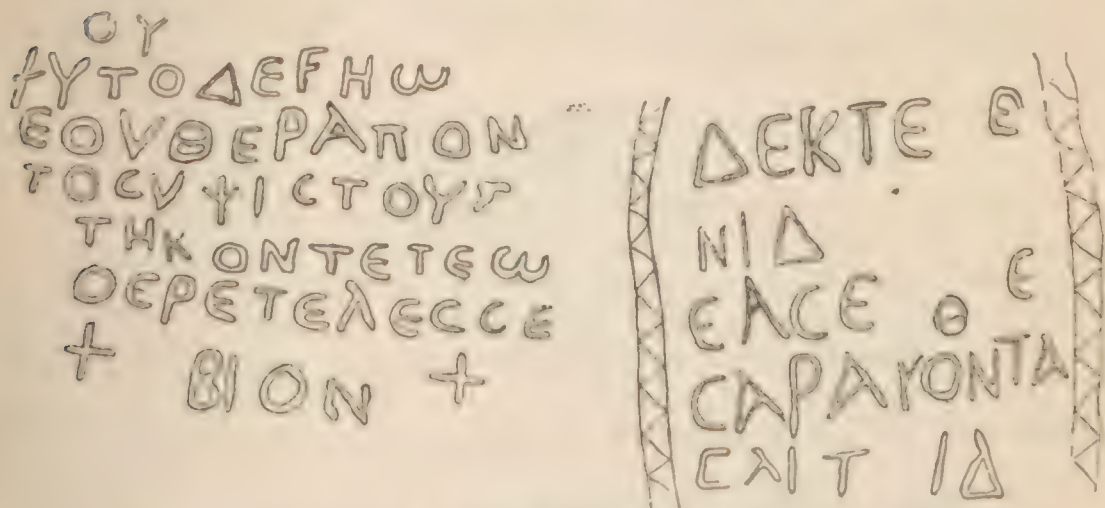 ΟΥ
ΑΥΤΟΔΕFΗω
ΕΟVΘΕΡΑΠΟΝ
ΤΟCVΨΙCΤΟΥΤ
ΤΗΚΟΝΤΕΤΕω
ΟΕΡΕΤΕΛΕCCΕ
+ ΒΙΟΝ +
ΔΕΚΤΕ Ε
ΝΙΔ
ΕΑCΕ Θ Ε
CΑΡΑΥΟΝΤΑ
CΑΙΤ ΙΔ